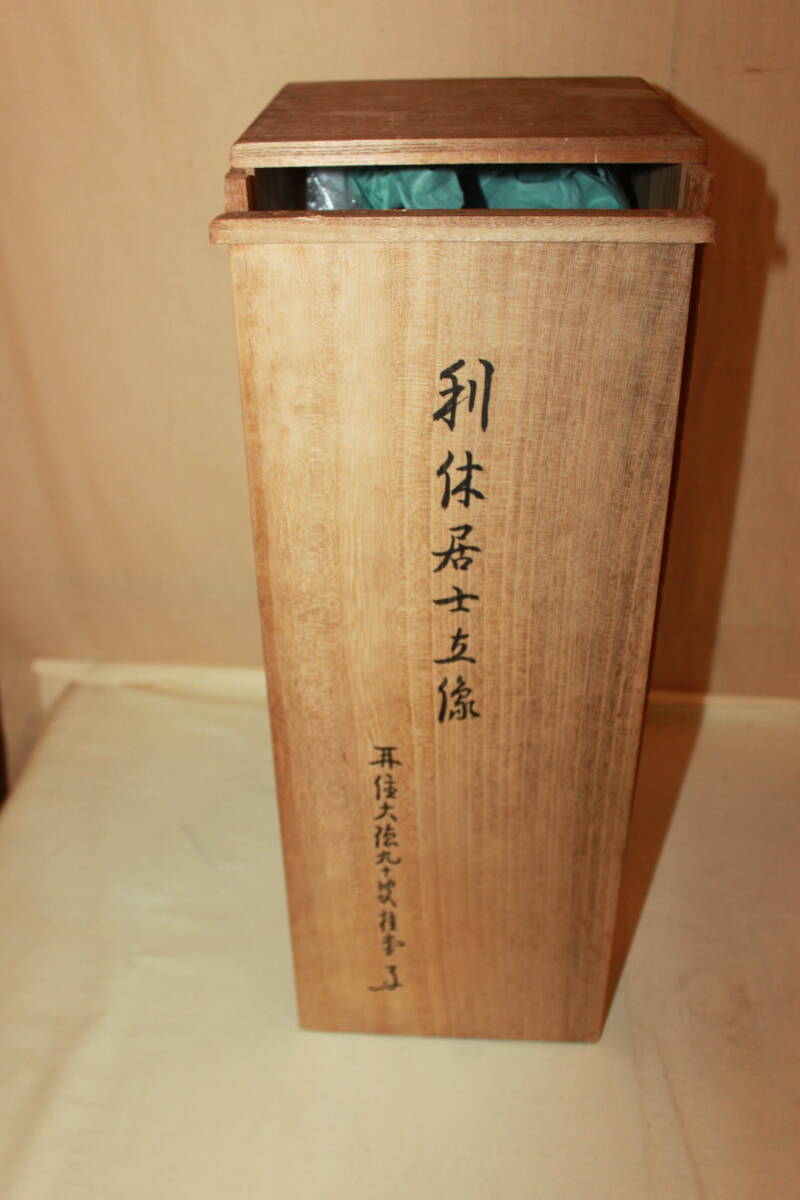 利休居士立像
再住大徳九十叟桂堂